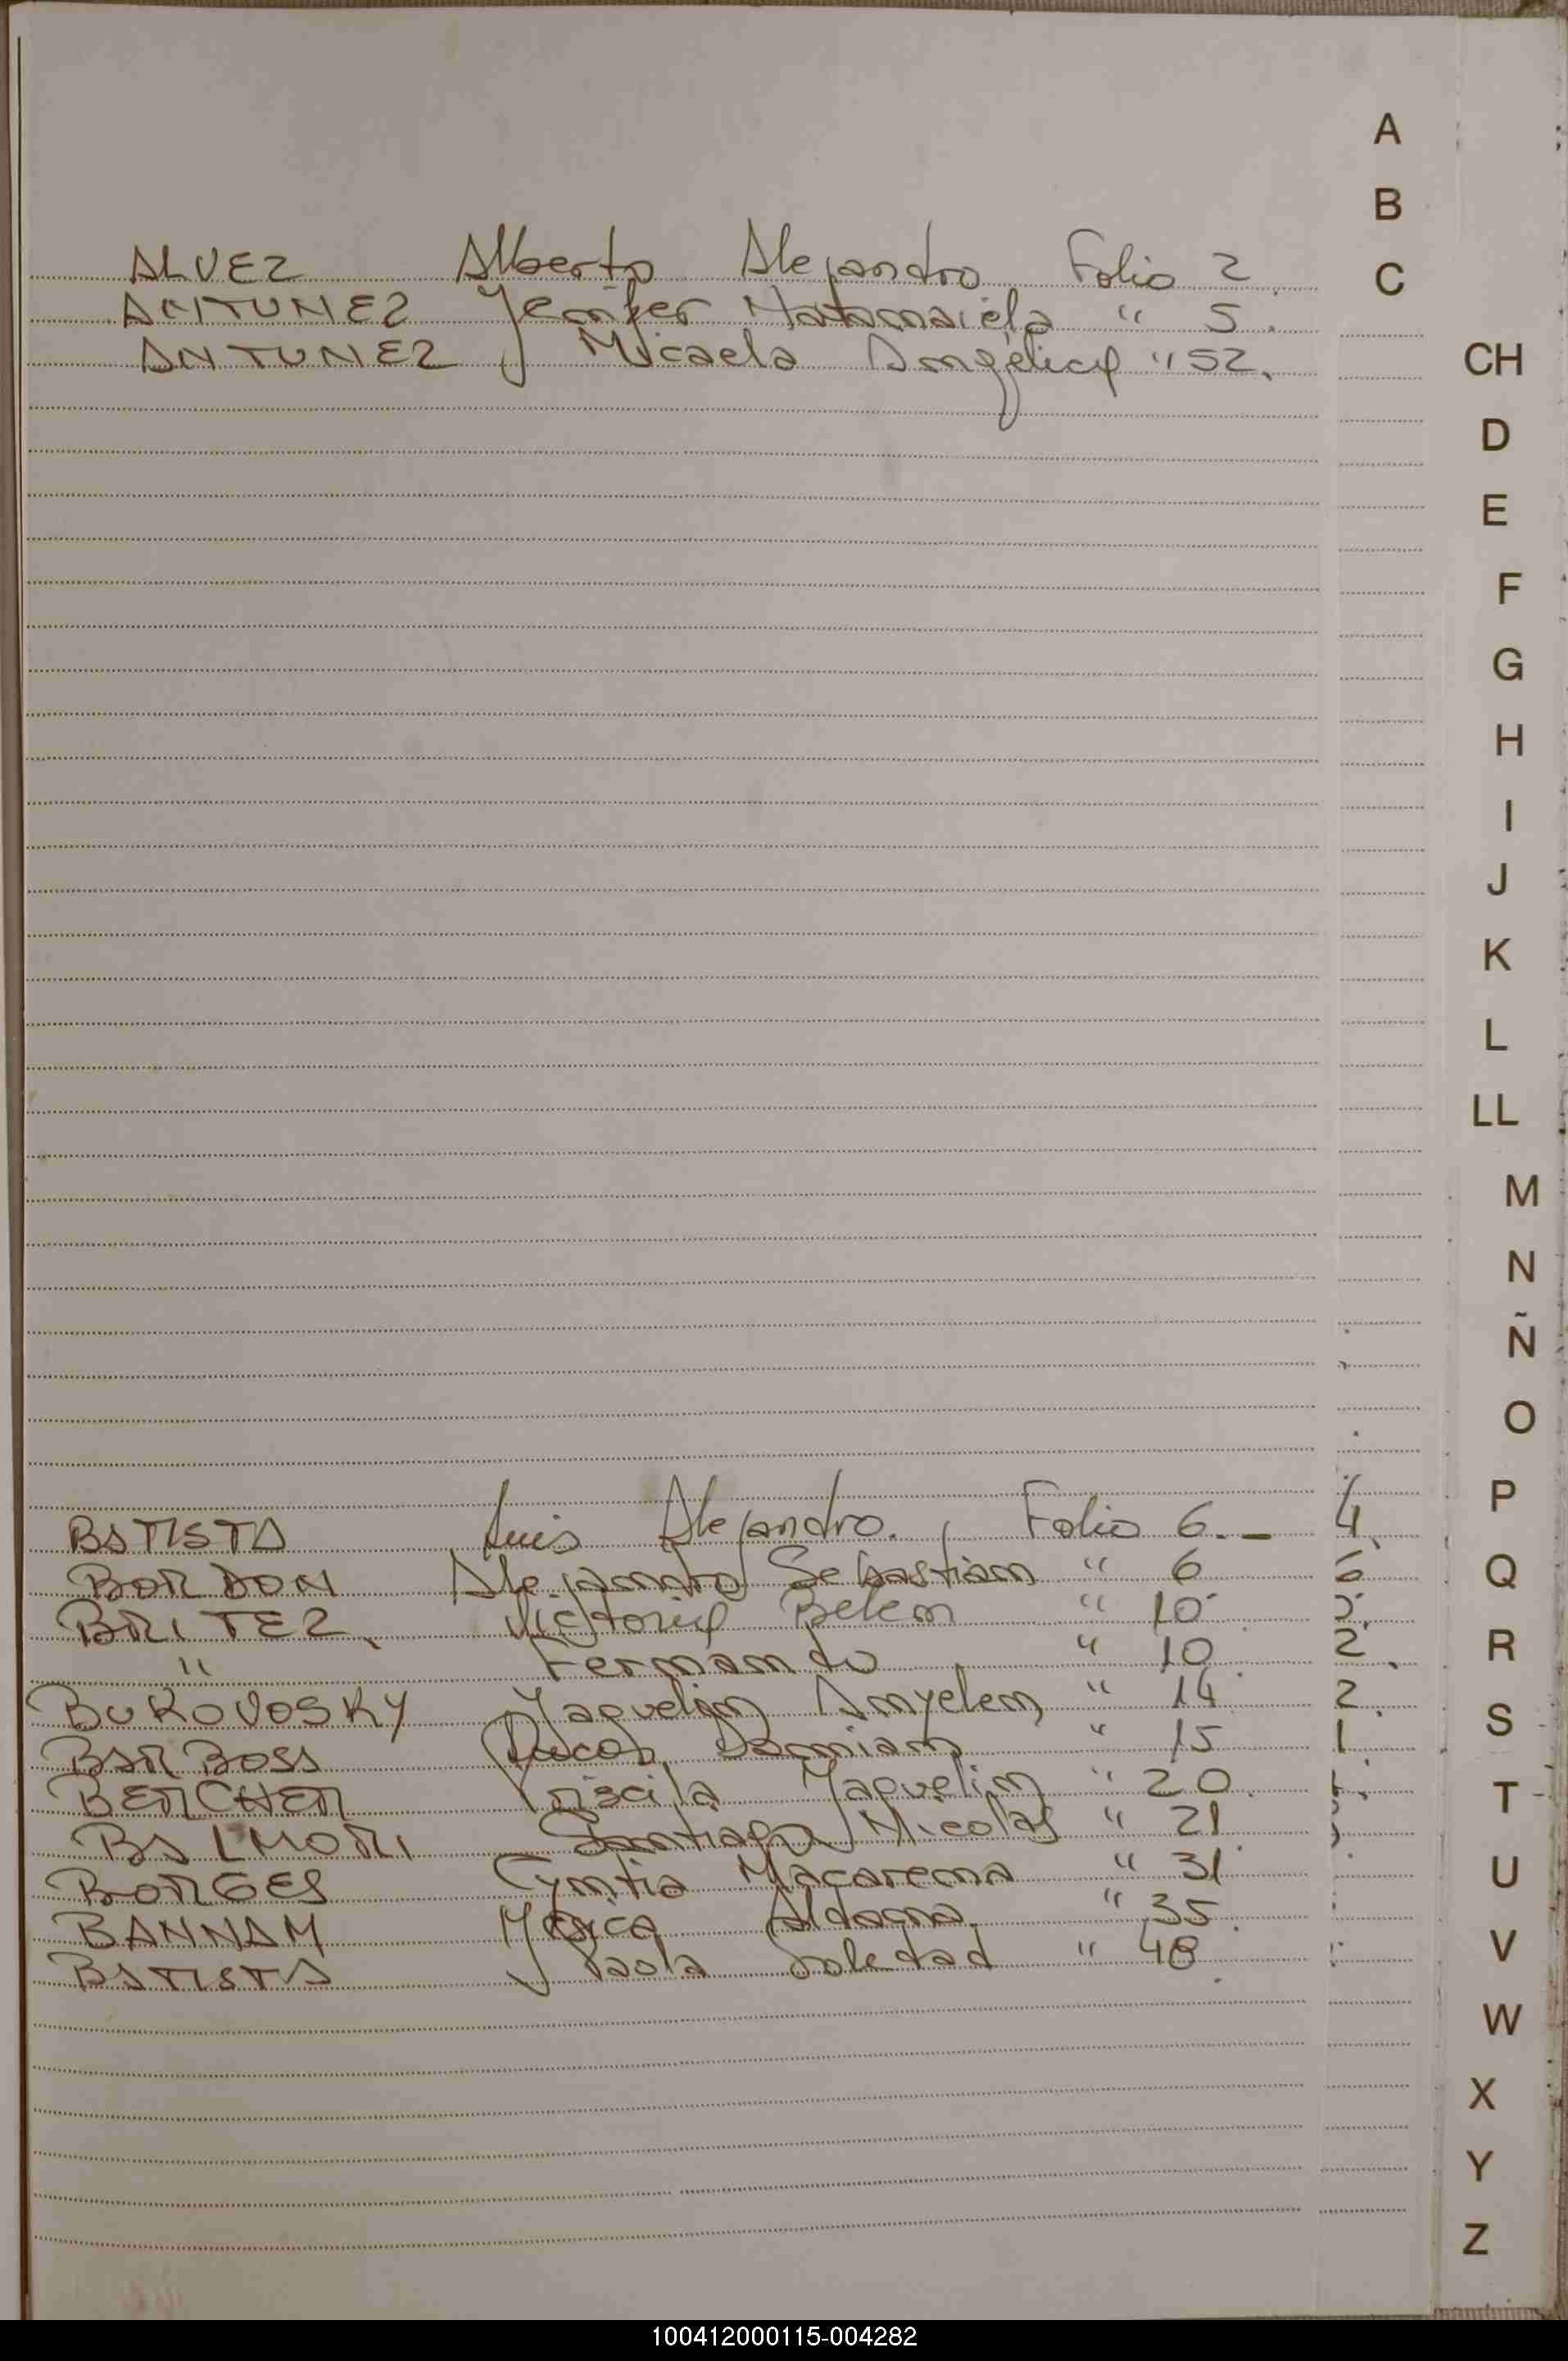 A
B
C
CH
D
E
F
G
H
I
J
K
L
LL
M
N
Ñ
O
P
Q
R
S
T
U
V
W
X
Y
Z
ALVEZ Alberto Alejandro Folio 2.
ANTUNEZ Jenifer " 5.
ANTUNEZ Micaela Angélica " 52.
BATISTA Luis Alejandro. Folio 6. 4
BORDON Alejandro Sebastian " 6
BRITEZ Victoria Belen " 10
" Fernando " 10 2
BUKOVOSKY Yaquelin Anyelen " 14 2
BARBOSA Lucas Damian " 15 1
BERCHER Priscila Yaquelin " 20
BALMORI Santiago Nicolas " 21
BORGES Cyntia Macarena " 31
BANNAM Yesica Aldana " 35
BATISTA Paola Soledad " 48
100412000115-004282